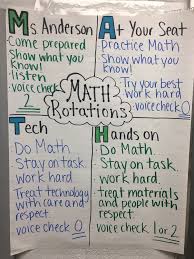 Ms. Anderson
Come prepared
Show what you
know!
listen
voice check
2
At Your Seat
Practice Math
Show what you
know!
Try your best
work hard
voice check 0
MATH
Rotations
Tech
Do Math
Stay on task
work hard
Treat technology
with care and
respect
voice check 0
Hands on
Do Math
Stay on task
work hard.
treat materials
and people with
respect
voice check 1 or 2